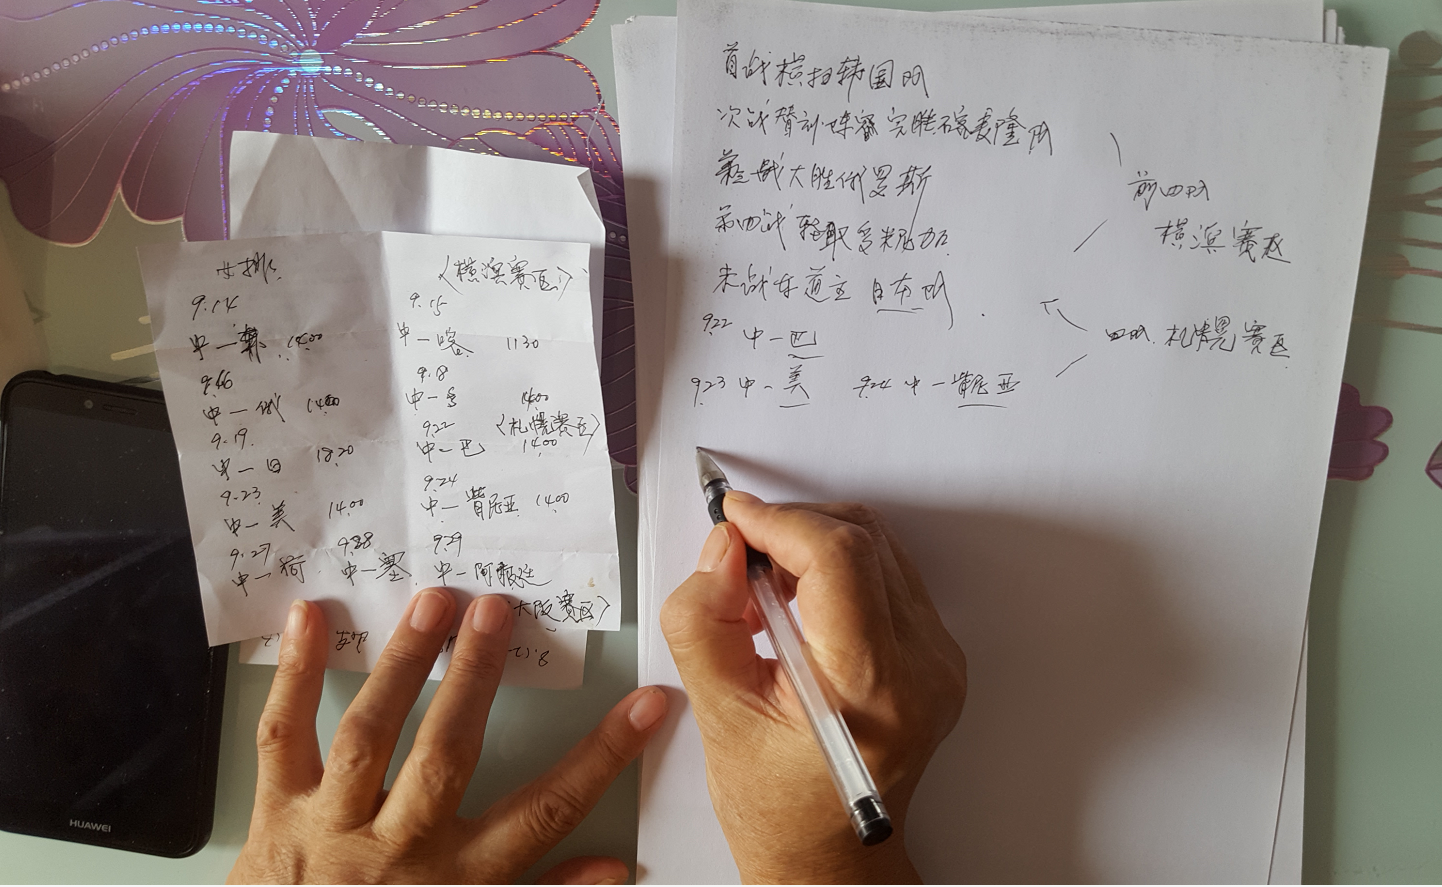 女排 〈横滨赛区〉
9.14 9.15
中—韩 14.00 中—喀 11.30
9.16 9.18
中—俄 14.00 中—多 14.00
9.19. 9.22 〈札幌赛区〉
中—日 18.20 中—巴 14.00
9.23 9.24
中—美 14.00 中—肯尼亚 14.00
9.27 9.28 9.29
中—荷 中—塞 中—阿根廷
大阪赛区〉
首战横扫韩国队
次战 完胜 麦隆队
第三战大胜俄罗斯
第四战轻取多米尼加
末战东道主日本队
9.22 中—巴
9.23 中—美 9.24 中—肯尼亚
前四队
横滨赛区
四队 札幌赛区
HUAWEI